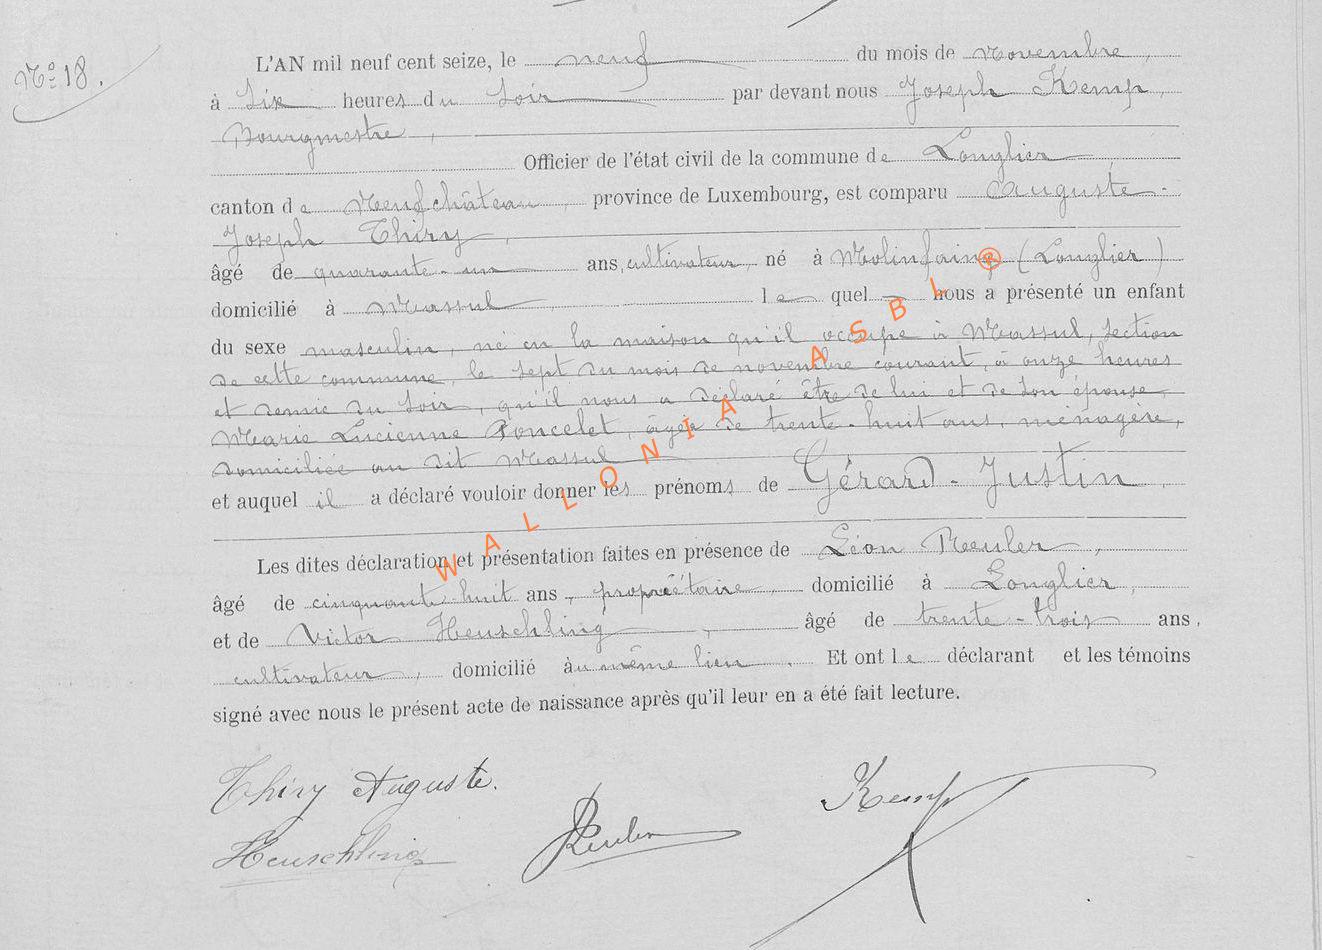 No 18.
L'AN mil neuf cent seize, le neuf du mois de novembre,
à six heures du soir par devant nous Joseph Kemp,
Bourgmestre,
Officier de l'état civil de la commune de Longlier,
canton de Neufchâteau, province de Luxembourg, est comparu Auguste-
Joseph Thiry,
âgé de quarante-un ans, cultivateur, né à Molinfaing (Longlier)
domicilié à Massul, lequel nous a présenté un enfant
du sexe masculin, né en la maison qu'il occupe à Massul, section
de cette commune, le sept du mois de novembre courant, à onze heures
et demie du soir, qu'il nous a déclaré être de lui et de son épouse,
Marie Lucienne Poncelet, âgée de trente-huit ans, ménagère,
domiciliée au dit Massul
et auquel il a déclaré vouloir donner les prénoms de Gérard-Justin,
Les dites déclaration et présentation faites en présence de Léon Reuler,
âgé de cinquante-huit ans, propriétaire, domicilié à Longlier,
et de Victor Heuschling, âgé de trente-trois ans,
cultivateur, domicilié au même lieu. Et ont le déclarant et les témoins
signé avec nous le présent acte de naissance après qu'il leur en a été fait lecture.
Thiry Auguste.
Kemp
Heuschling
Reuler
WALLONIA ASBL ®